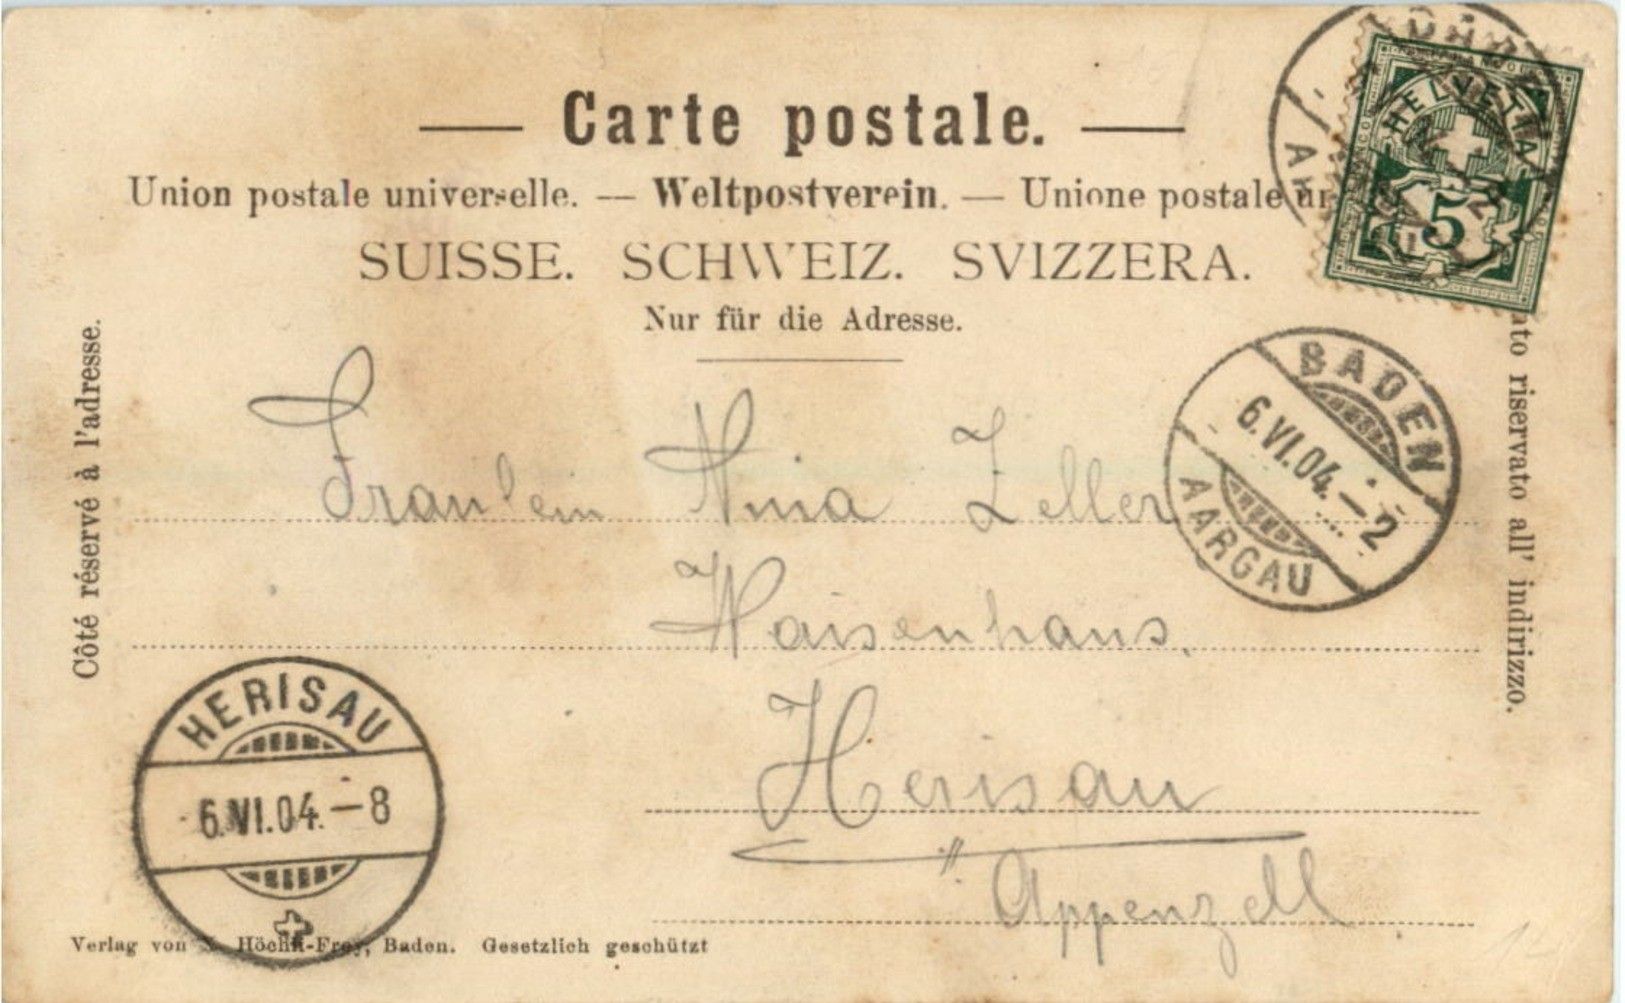 — Carte postale. —
Union postale universelle. — Weltpostverein. — Unione postale
SUISSE. SCHWEIZ. SVIZZERA.
Nur für die Adresse.
Côté réservé à l'adresse.
riservato all' indirizzo.
HELVETIA
5
BADEN
6.VI.04.–2
AARGAU
Fräulein Nina Zeller
Waisenhaus.
Herisau
Appenzell
HERISAU
6.VI.04.–8
Verlag von Höchli-Frey, Baden. Gesetzlich geschützt